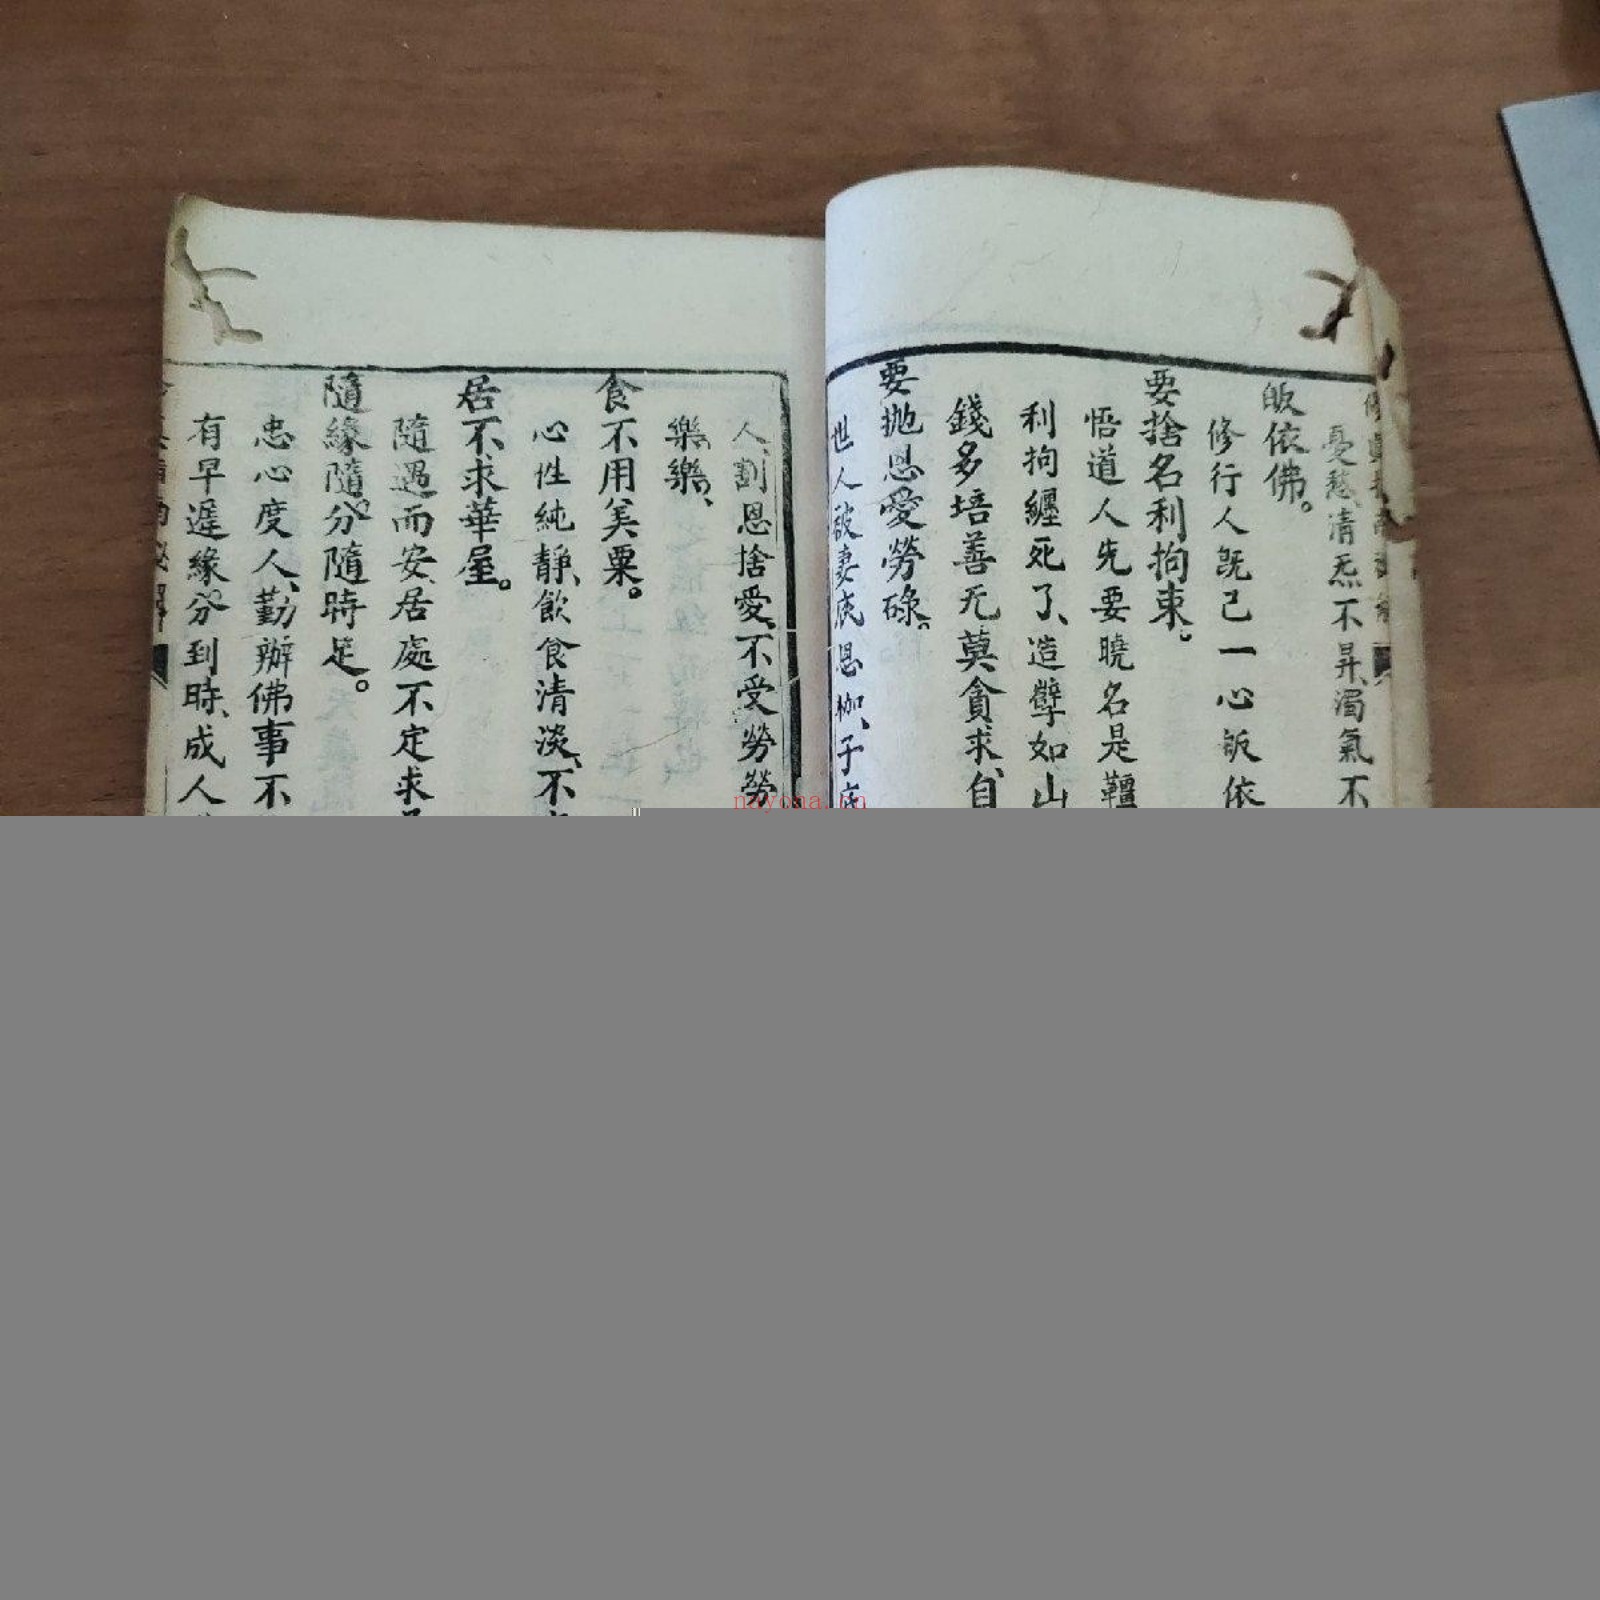 憂愁、清炁不昇、濁氣不
皈依佛。
修行人既已一心皈依
要捨名利拘束。
悟道人先要曉名是韁
利拘纏死了、造孽如山
錢多培善无莫貪求、自
要抛恩愛勞碌。
世人被妻庻恩枷、子
人、割恩捨愛、不受勞勞
樂樂、
食不用美粟。
心性純静、飲食清淡、不
居不求華屋。
隨遇而安、居處不定求
隨緣隨分隨時足。
忠心度人、勤辦佛事不
有早遲緣分到時、成人
nayona.cn